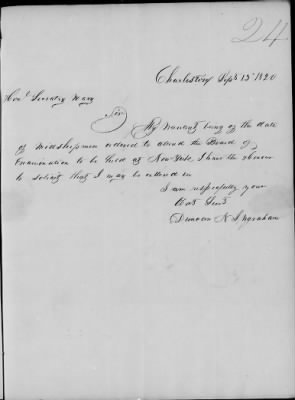 24
Charleston Sept 13th 1820
Hon. Secretary Navy
Sir
My warrant being of the date
of midshipmen ordered to attend the Board of
Examination to be held at New York, I have the honour
to solicit that I may be ordered on
I am respectfully your
Obt Servt
Duncan N Ingraham